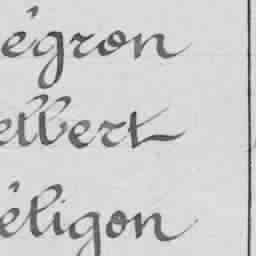 égron
elbert
éligon